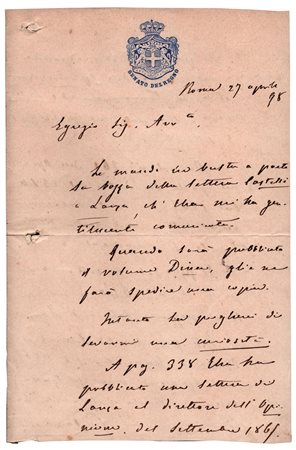 SENATO DEL REGNO
Roma 27 aprile
98
Egregio Sig. Avv.to
Le mando in busta a parte
la bozza della lettera Castelli
a Lanza, ch'Ella mi ha gen-
tilmente comunicata.
Quando sarà pubblicato
il volume Dina, gliene
farò spedire una copia.
Intanto La pregherei di
levarmi una curiosità.
A pag. 338 Ella ha
pubblicato una lettera di
Lanza al direttore dell'Opi-
nione, del settembre 1865